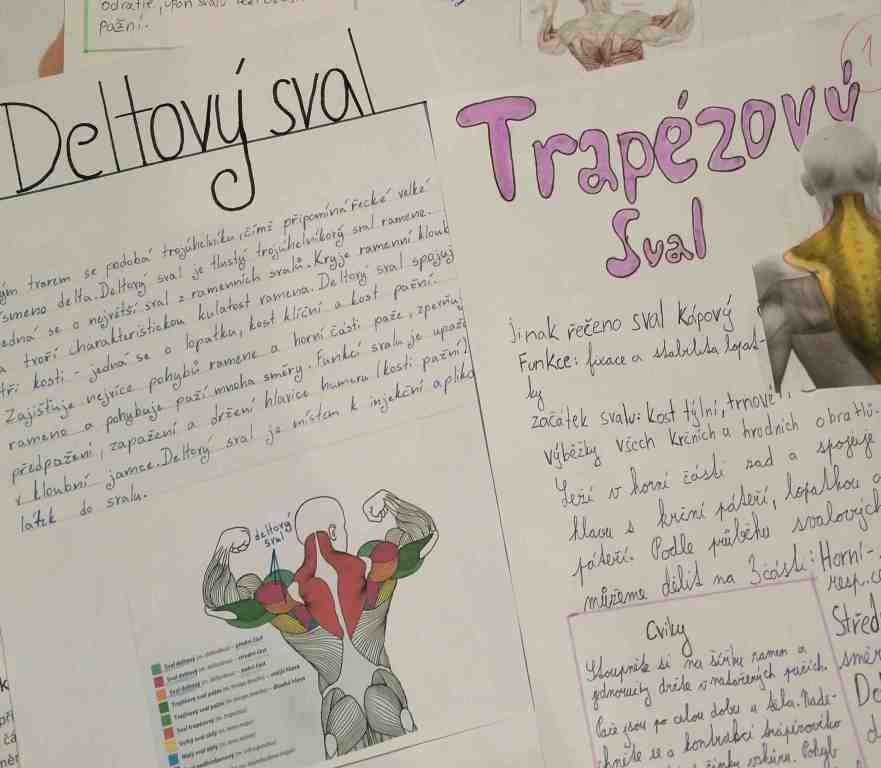 odratie, upon svalu
pažní.
Deltový sval
ým tvarem se podobá trojúhelníku, čímž připomíná řecké velké
ísmeno delta. Deltový sval je tlustý trojúhelníkový sval ramene.
edná se o největší sval z ramenních svalů. Kryje ramenní kloub
a tvoří charakteristickou kulatost ramena. Deltový sval spojuj
tři kosti - jedná se o lopatku, kost klíční a kost pažní.
Zajišťuje nejvíce pohybů ramene a horní části paže, zpevňuj
rameno a pohybuje paží mnoha směry. Funkcí svalu je upaže
předpažení, zapažení a držení hlavice humeru (kosti pažní)
v kloubní jamce. Deltový sval je místem k injekční apliko
látek do svalu.
deltový
sval
Sval deltový přední část
Sval deltový střední část
Sval deltový zadní část
Trojhlavý sval pažní
Trojhlavý sval pažní dlouhá hlava
Sval trapézový
Velký sval oblý
Malý sval oblý
Trapézový
Sval
1
jinak řečeno sval kápový
Funkce: fixace a stabilita lopat-
ky
začátek svalu: kost týlní, trnové
výběžky všech krčních a hrudních obratlů.
Leží v horní části zad a spojuje
hlavu s krční páteří, lopatkou a
páteří. Podle průběhu svalových
můžeme dělit na 3 části: Horní -
resp. c
Střed
směr
Do
d
Cviky
Stoupněte si na šířku ramen a
jednoručky držte v natažených pažích.
Paže jsou po celou dobu u těla. Nade-
chněte se a kontrakcí trapézového
činky vzhůru. Pohyb